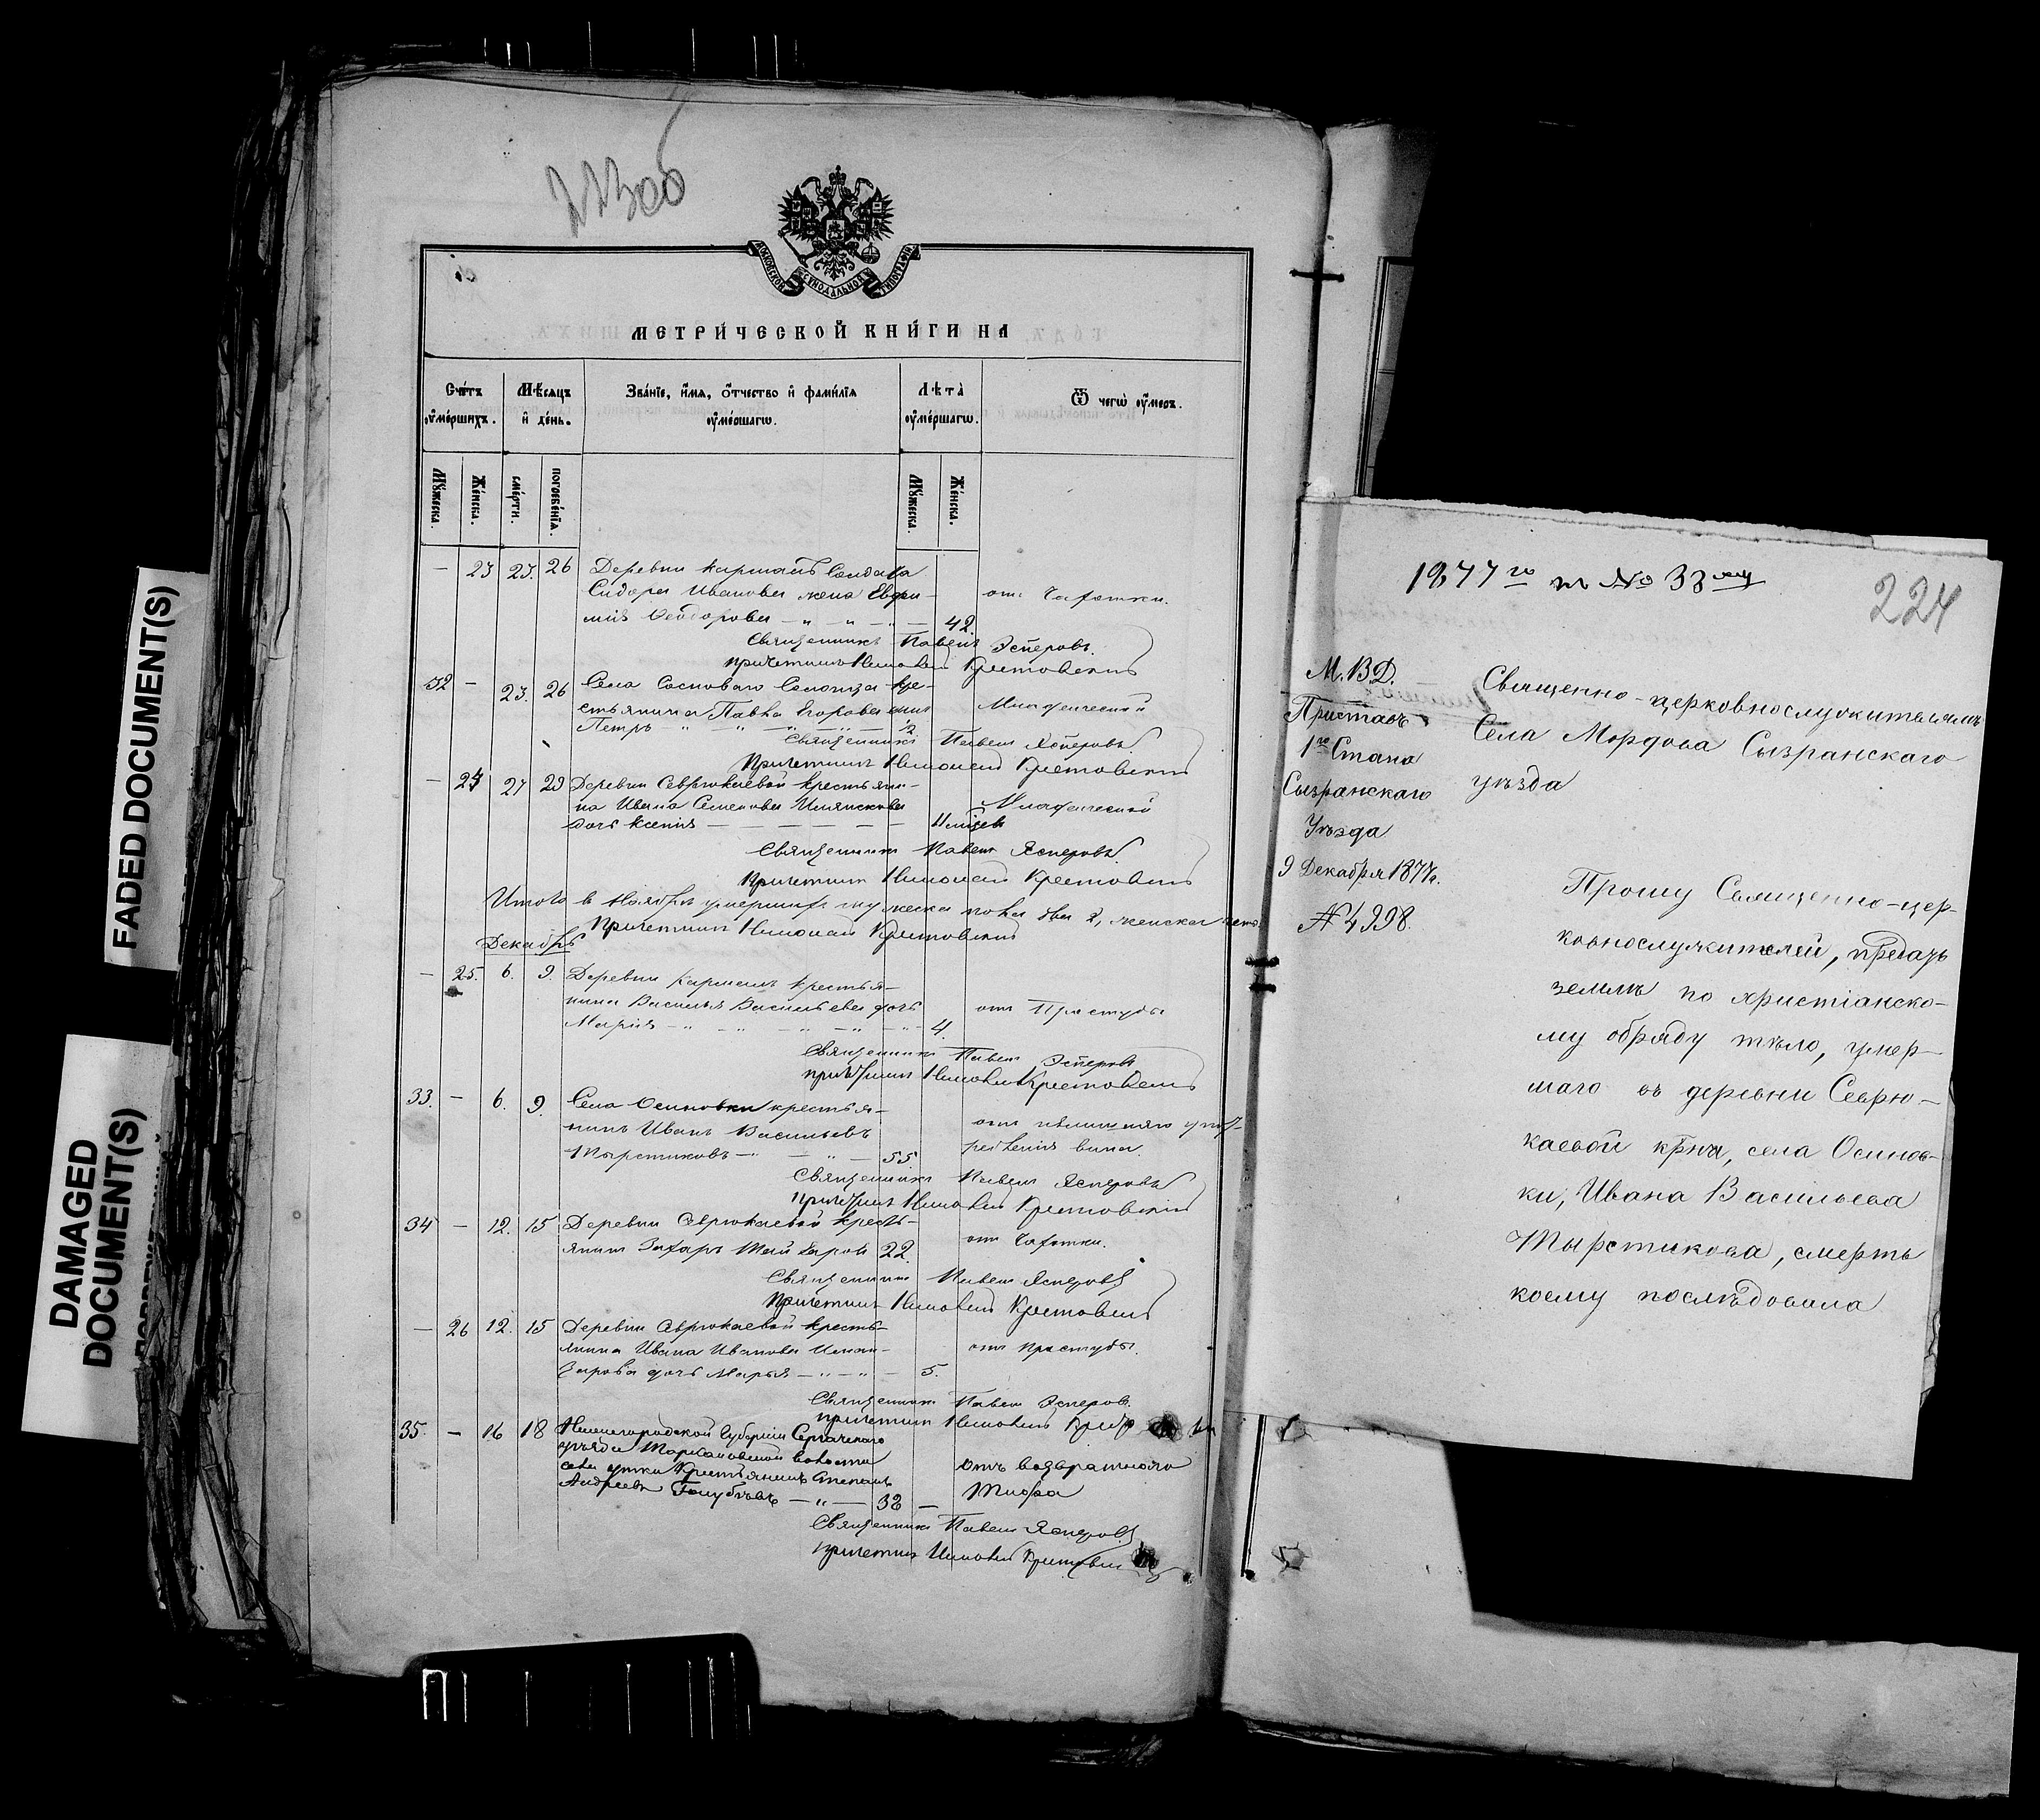 FADED DOCUMENT(S)
DAMAGED DOCUMENT(S)
223об
МОСКОВСКОЙ СѴНОДАЛЬНОЙ ТИПОГРАФІИ
МЕТРИ́ЧЕСКОЙ КНИ́ГИ НА
Сче́тъ ᲂу҆ме́ршихъ.
Мѣ́сяцъ и҆ де́нь.
Зва́нїе, и҆́мя, ѻ҆́тчество и҆ фами́лїя ᲂу҆ме́ршагѡ.
Лѣ́та ᲂу҆ме́ршагѡ.
Ѿ чегѡ̀ ᲂу҆́меръ.
Мꙋ́жеска.
Же́нска.
сме́рти.
погребе́нїѧ.
Мꙋ́жеска
Же́нска.
— 23 23. 26 Деревни Кармалъ Солдата
Сидора Иванова жена Евфи- отъ Чахотки.
мія Ѳеодорова — „ — „ — „ — 42.
Священникъ Павелъ Эсперовъ.
Причетникъ Николай Крестовскій
32 — 23. 26 Села Сосноваго Солонца кре-
стьянина Павла Егорова сынъ Младенческой
Петръ — „ — „ — „ — ½
Священникъ Павелъ Эсперовъ.
Причетникъ Николай Крестовскій
— 24 27 29 Деревни Севрюкаевой крестьяни-
на Ивана Семенова Младенческой
дочь Ксенія — — — — —
Священникъ Павелъ Эсперовъ.
Причетникъ Николай Крестовскій
Итого в Ноябрѣ умершихъ мужеска пола два 2, женска
Причетникъ Николай Крестовскій
Декабрь
— 25. 6. 9. Деревни Кармалъ крестья-
нина Василья Васильева дочь отъ Простуды
Марія — „ — „ — „ — „ — 4.
Священникъ Павелъ Эсперовъ
Причетникъ Николай Крестовскій
33. — 6. 9. Села Осиновки крестья-
нинъ Иванъ Васильевъ отъ излишняго упот-
Тырстиковъ — „ — „ — 55. ребленія вина.
Священникъ Павелъ Эсперовъ
Причетникъ Николай Крестовскій
34 — 12. 15 Деревни Севрюкаевой кресть-
янинъ Захаръ 22. отъ Чахотки.
Священникъ Павелъ Эсперовъ
Причетникъ Николай Крестовскій
— 26 12. 15 Деревни Севрюкаевой кресть-
янина Ивана Иванова отъ простуды.
дочь Марья — „ — „ — 5.
Священникъ Павелъ Эсперовъ.
Причетникъ Николай
35. — 16 18 Нижегородской Губерніи Сергачскаго
уѣзда волости
села Крестьянинъ Степанъ отъ возвратнаго
Андреевъ Голубевъ — „ — 32 — Тифа
Священникъ Павелъ Эсперовъ
Причетникъ Николай Крестовскій
1877го къ № 33му
224
М.В.Д.
Приставъ
1го Стана
Сызранскаго
Уѣзда
9 Декабря 1877г.
№ 4998.
Священно-церковнослужителямъ
Села Мордова Сызранскаго
уѣзда
Прошу Священно-цер-
ковнослужителей, предать
землѣ по христіанско-
му обряду тѣло, умер-
шаго въ деревни Севрю-
каевой крна, села Осинов-
ки, Ивана Васильева
Тырстикова, смерть
коему послѣдовала